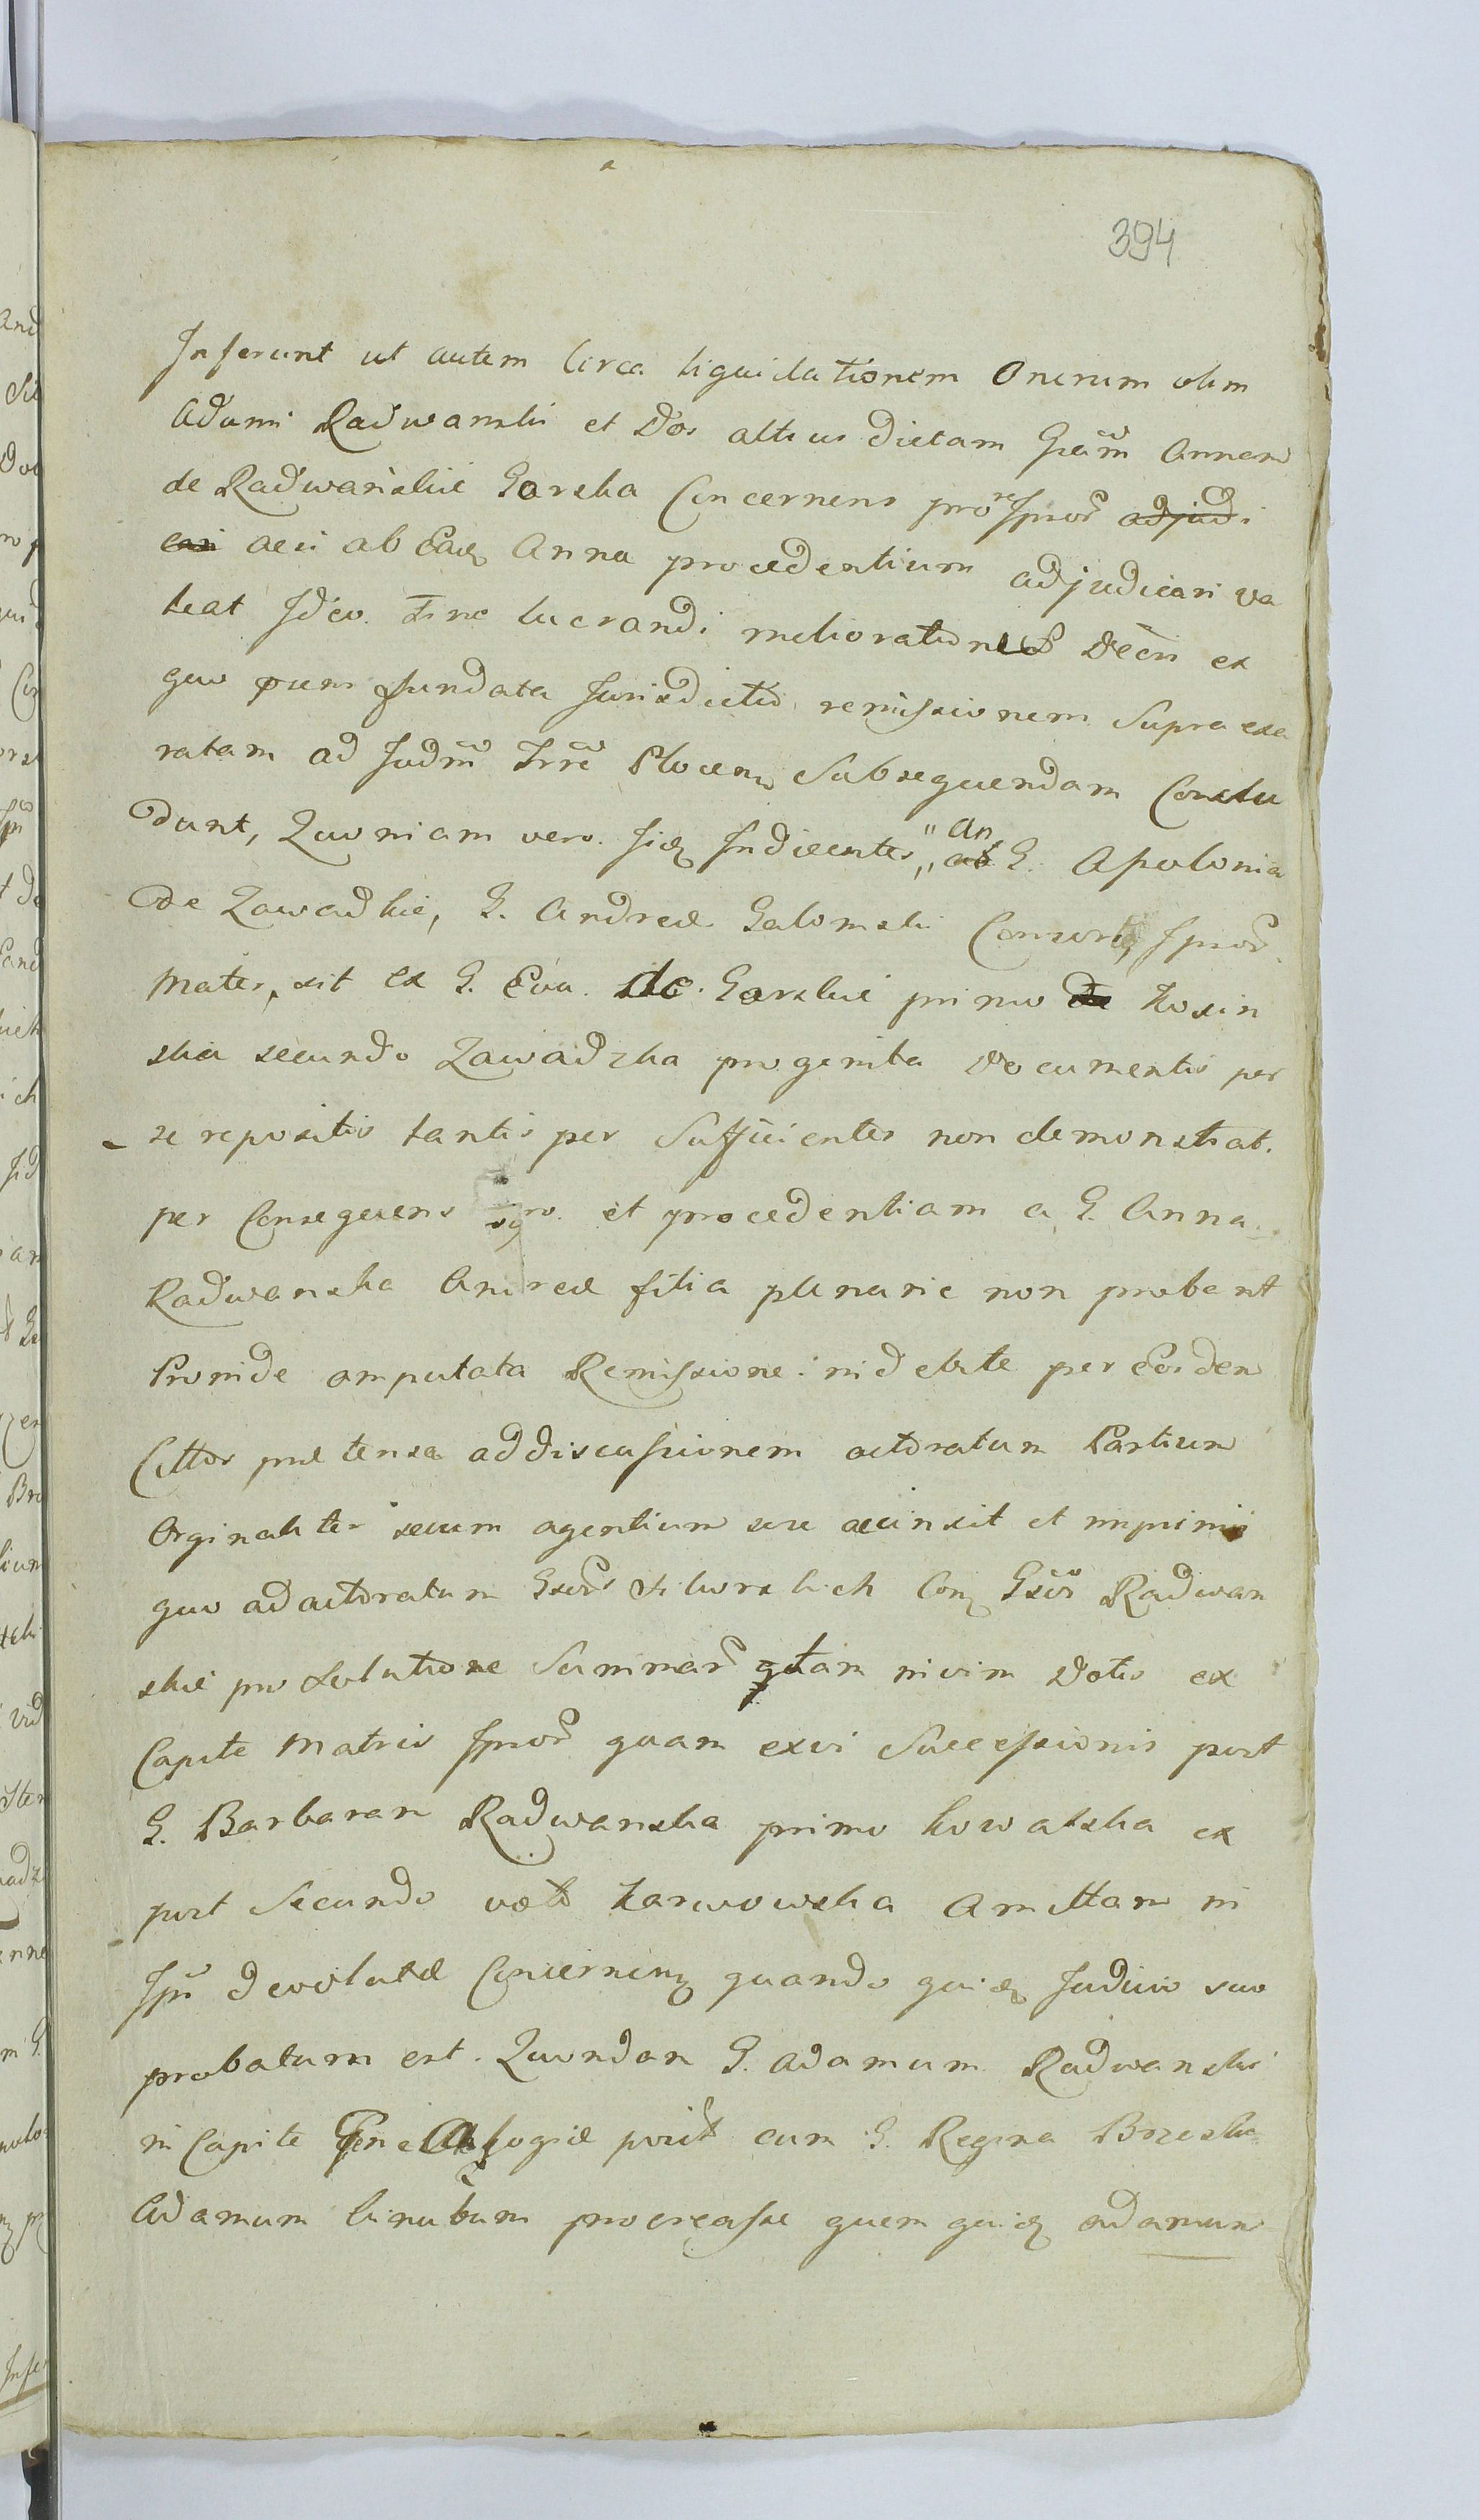 394
Inferunt ut autem Circa liquidationem Onerum olim
Adami Radwanski et Dos altius dictam Gsam Annam
de Radwańskie Garska Concernens pro Ipsor adjudi
cari acsi ab Eadq Anna procedentium adjudicari va
leat Ideo fine lucrandi meliorationes Decri ex
quo puns fundata Jurisdictio remissionem Supra exa
ratam ad Judm Trre Plocens Subsequendam Conclu
dunt, Quoniam vero Iidq Indicentes, an G. Apolonia
de Zawadskie, G. Andreæ Galomski Consors, Ipsor
Mater, sit ex G. Eva de Garskie primo Kosin
ska secundo Zawadzka progenita Documentis per
se repositis tantisper Sufficienter non demonstrat.
per Consequens et procedentiam a G. Anna
Radwanska Andreæ filia plenarie non probant
Proinde amputata Remissione indebite per Eosdem
Cittos prætensa ad discussionem actoratum Partium
Orginaliter secum agentium sese accinxit et imprimis
quo ad actoratum Gsor Sikorskich Con Gsos Radwan
skie pro Solutione Summar qtam nivim Dotis ex
Capite Matris Ipsor quam ex vi Successionis post
G. Barbaram Radwanska primo Kowalska ex
post Secundo voto Karwowska Amittam in
Ips devolutæ Concernenq quando quidq Judicio suo
probatum est. Quondam G. Adamum Radwanski
in Capite Genealogiæ posit cum G. Regina Brzeska
Adamum binubum procreasse quem quidq Adamum